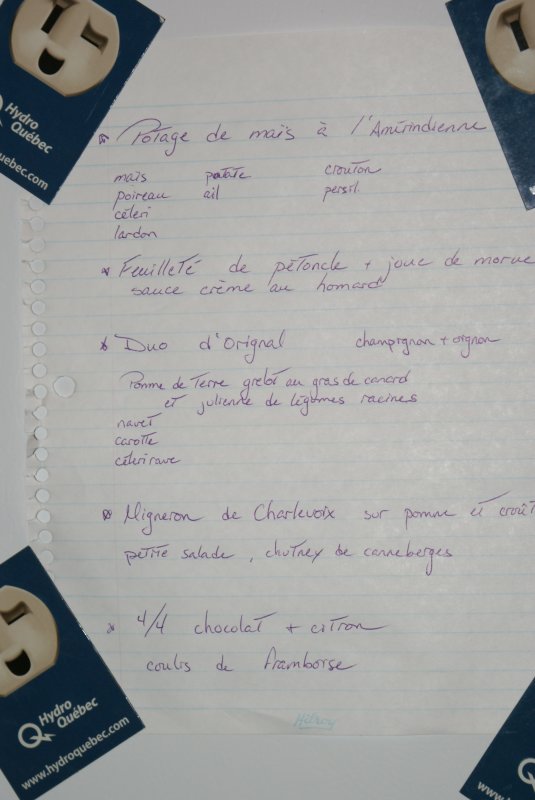 Hydro
Québec
uebec.com
* Potage de maïs à l'Amérindienne
maïs patate crouton
poireau ail persil
céleri
lardon
* Feuilleté de pétoncle + joue de morue
sauce crème au homard
* Duo d'Orignal champignon + oignon
Pomme de terre grelot au gras de canard
et julienne de légumes racines
navet
carotte
céleri rave
* Migneron de Charlevoix sur pomme et croût
petite salade, chutney de canneberges
* 4/4 chocolat + citron
coulis de framboise
Hilroy
Hydro
Québec
www.hydroquebec.com
www.hyd